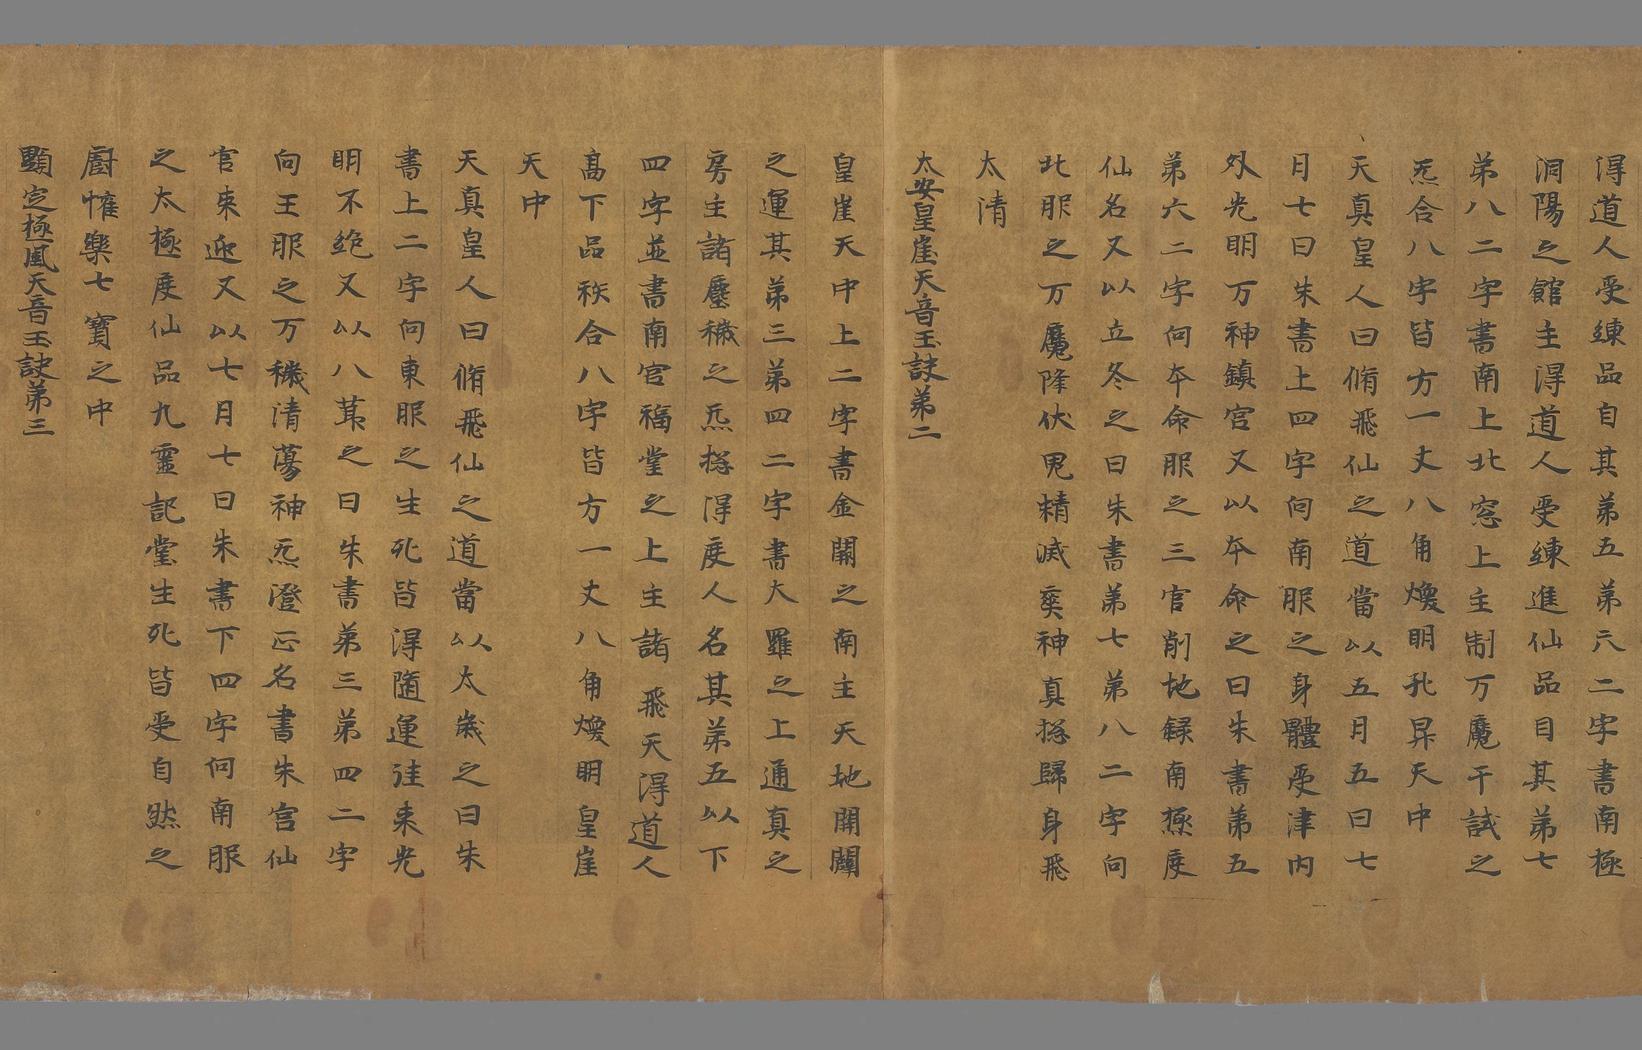 得道人受練品自其苐五苐六二字書南極
洞陽之館主淂道人受練進仙品目其苐七
苐八二字書南上北窓上主制万魔干試之
炁合八字皆方一丈八角煥明孔昇天中
天真皇人曰脩飛仙之道當以五月五日七
月七日朱書上四字向南服之身體受津内
外光明万神鎮宫又以夲命之日朱書苐五
苐六二字向夲命服之三官削地録南極度
仙名又以立冬之日朱書苐七苐八二字向
北服之万魔降伏鬼精滅爽神真揔歸身飛
太清
太安皇崖天音玉訣苐二
皇崖天中上二字書金闕之南主天地開闢
之運其苐三苐四二字書大羅之上通真之
房主諸塵穢之炁揔淂度人名其苐五以下
四字並書南宫福堂之上主諸飛天淂道人
髙下品袟合八字皆方一丈八角煥明皇崖
天中
天真皇人曰脩飛仙之道當以太歲之日朱
書上二字向東服之生死皆淂隨運往来光
明不絶又以八莭之日朱書苐三苐四二字
向王服之万穢清蕩神炁澄正名書朱宫仙
官来迎又以七月七日朱書下四字向南服
之太極度仙品九靈記堂生死皆受自然之
廚帷樂七寶之中
顯定極風天音玉訣苐三